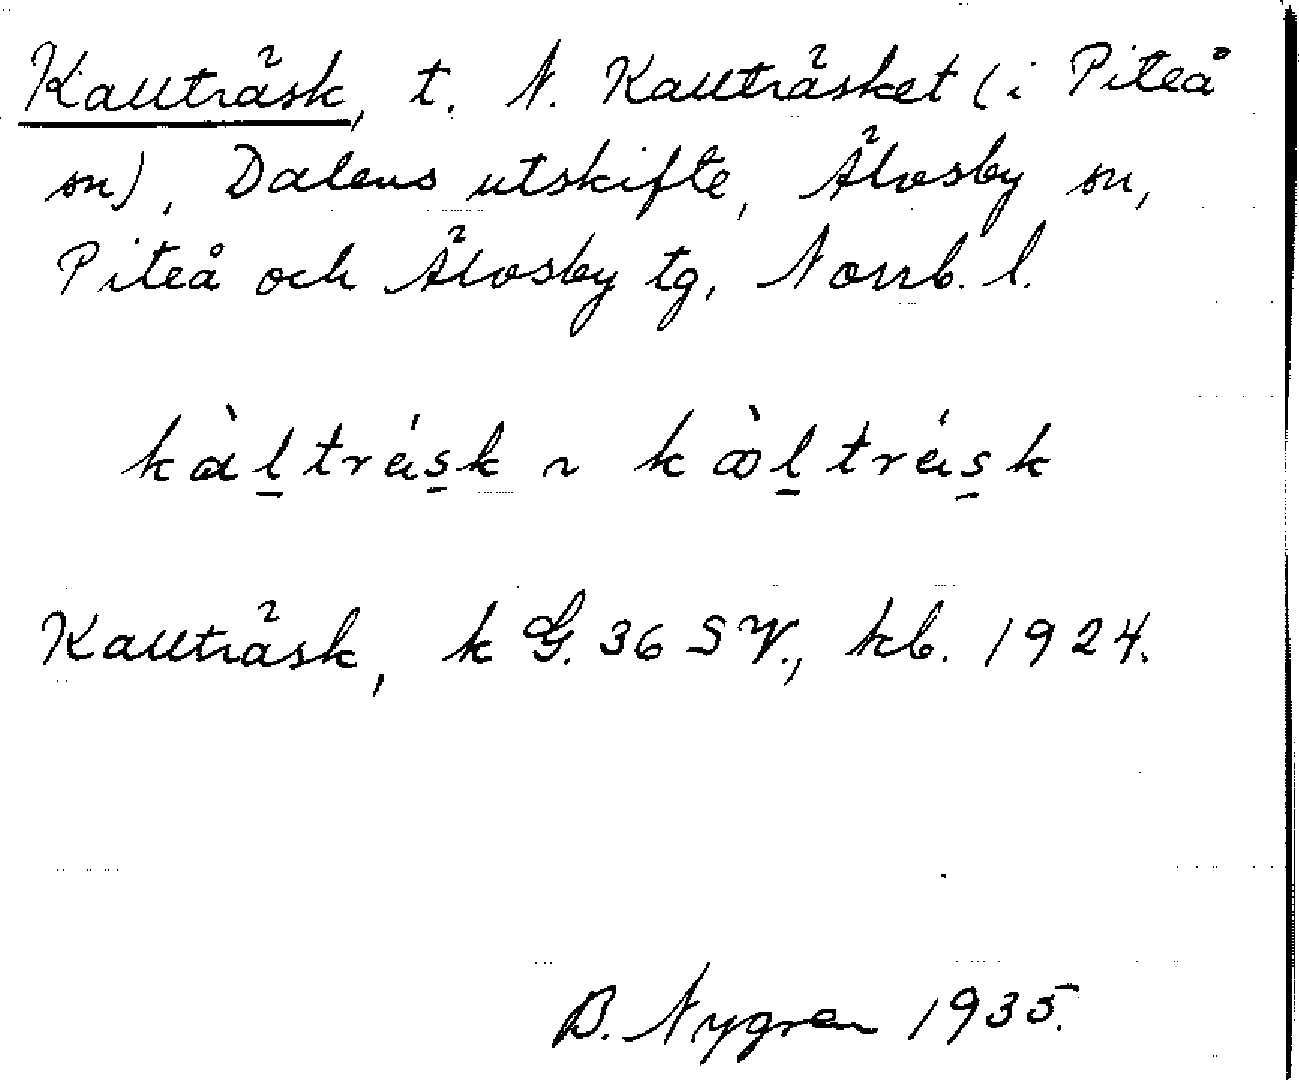 Kallträsk, t. N. Kallträsket (i Piteå
sn), Dalens utskifte, Älvsby sn,
Piteå och Älvsby tg, Norrb. l.
kàl̠trǽs̠k ~ kæ̀l̠trǽs̠k
Kallträsk, k G. 36 SV., kb. 1924.
B. Nygren 1935.